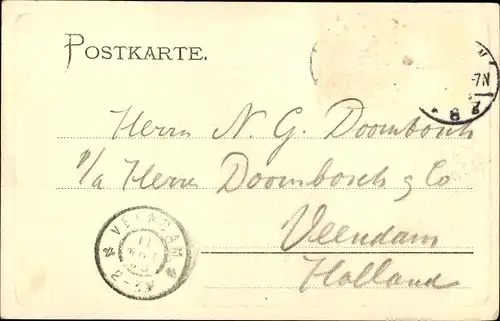 POSTKARTE.
-7N
* 8 z
Herrn N. G. Doornbosch
p/a Herrn Doornbosch & Co
Veendam
Holland
VEENDAM
11